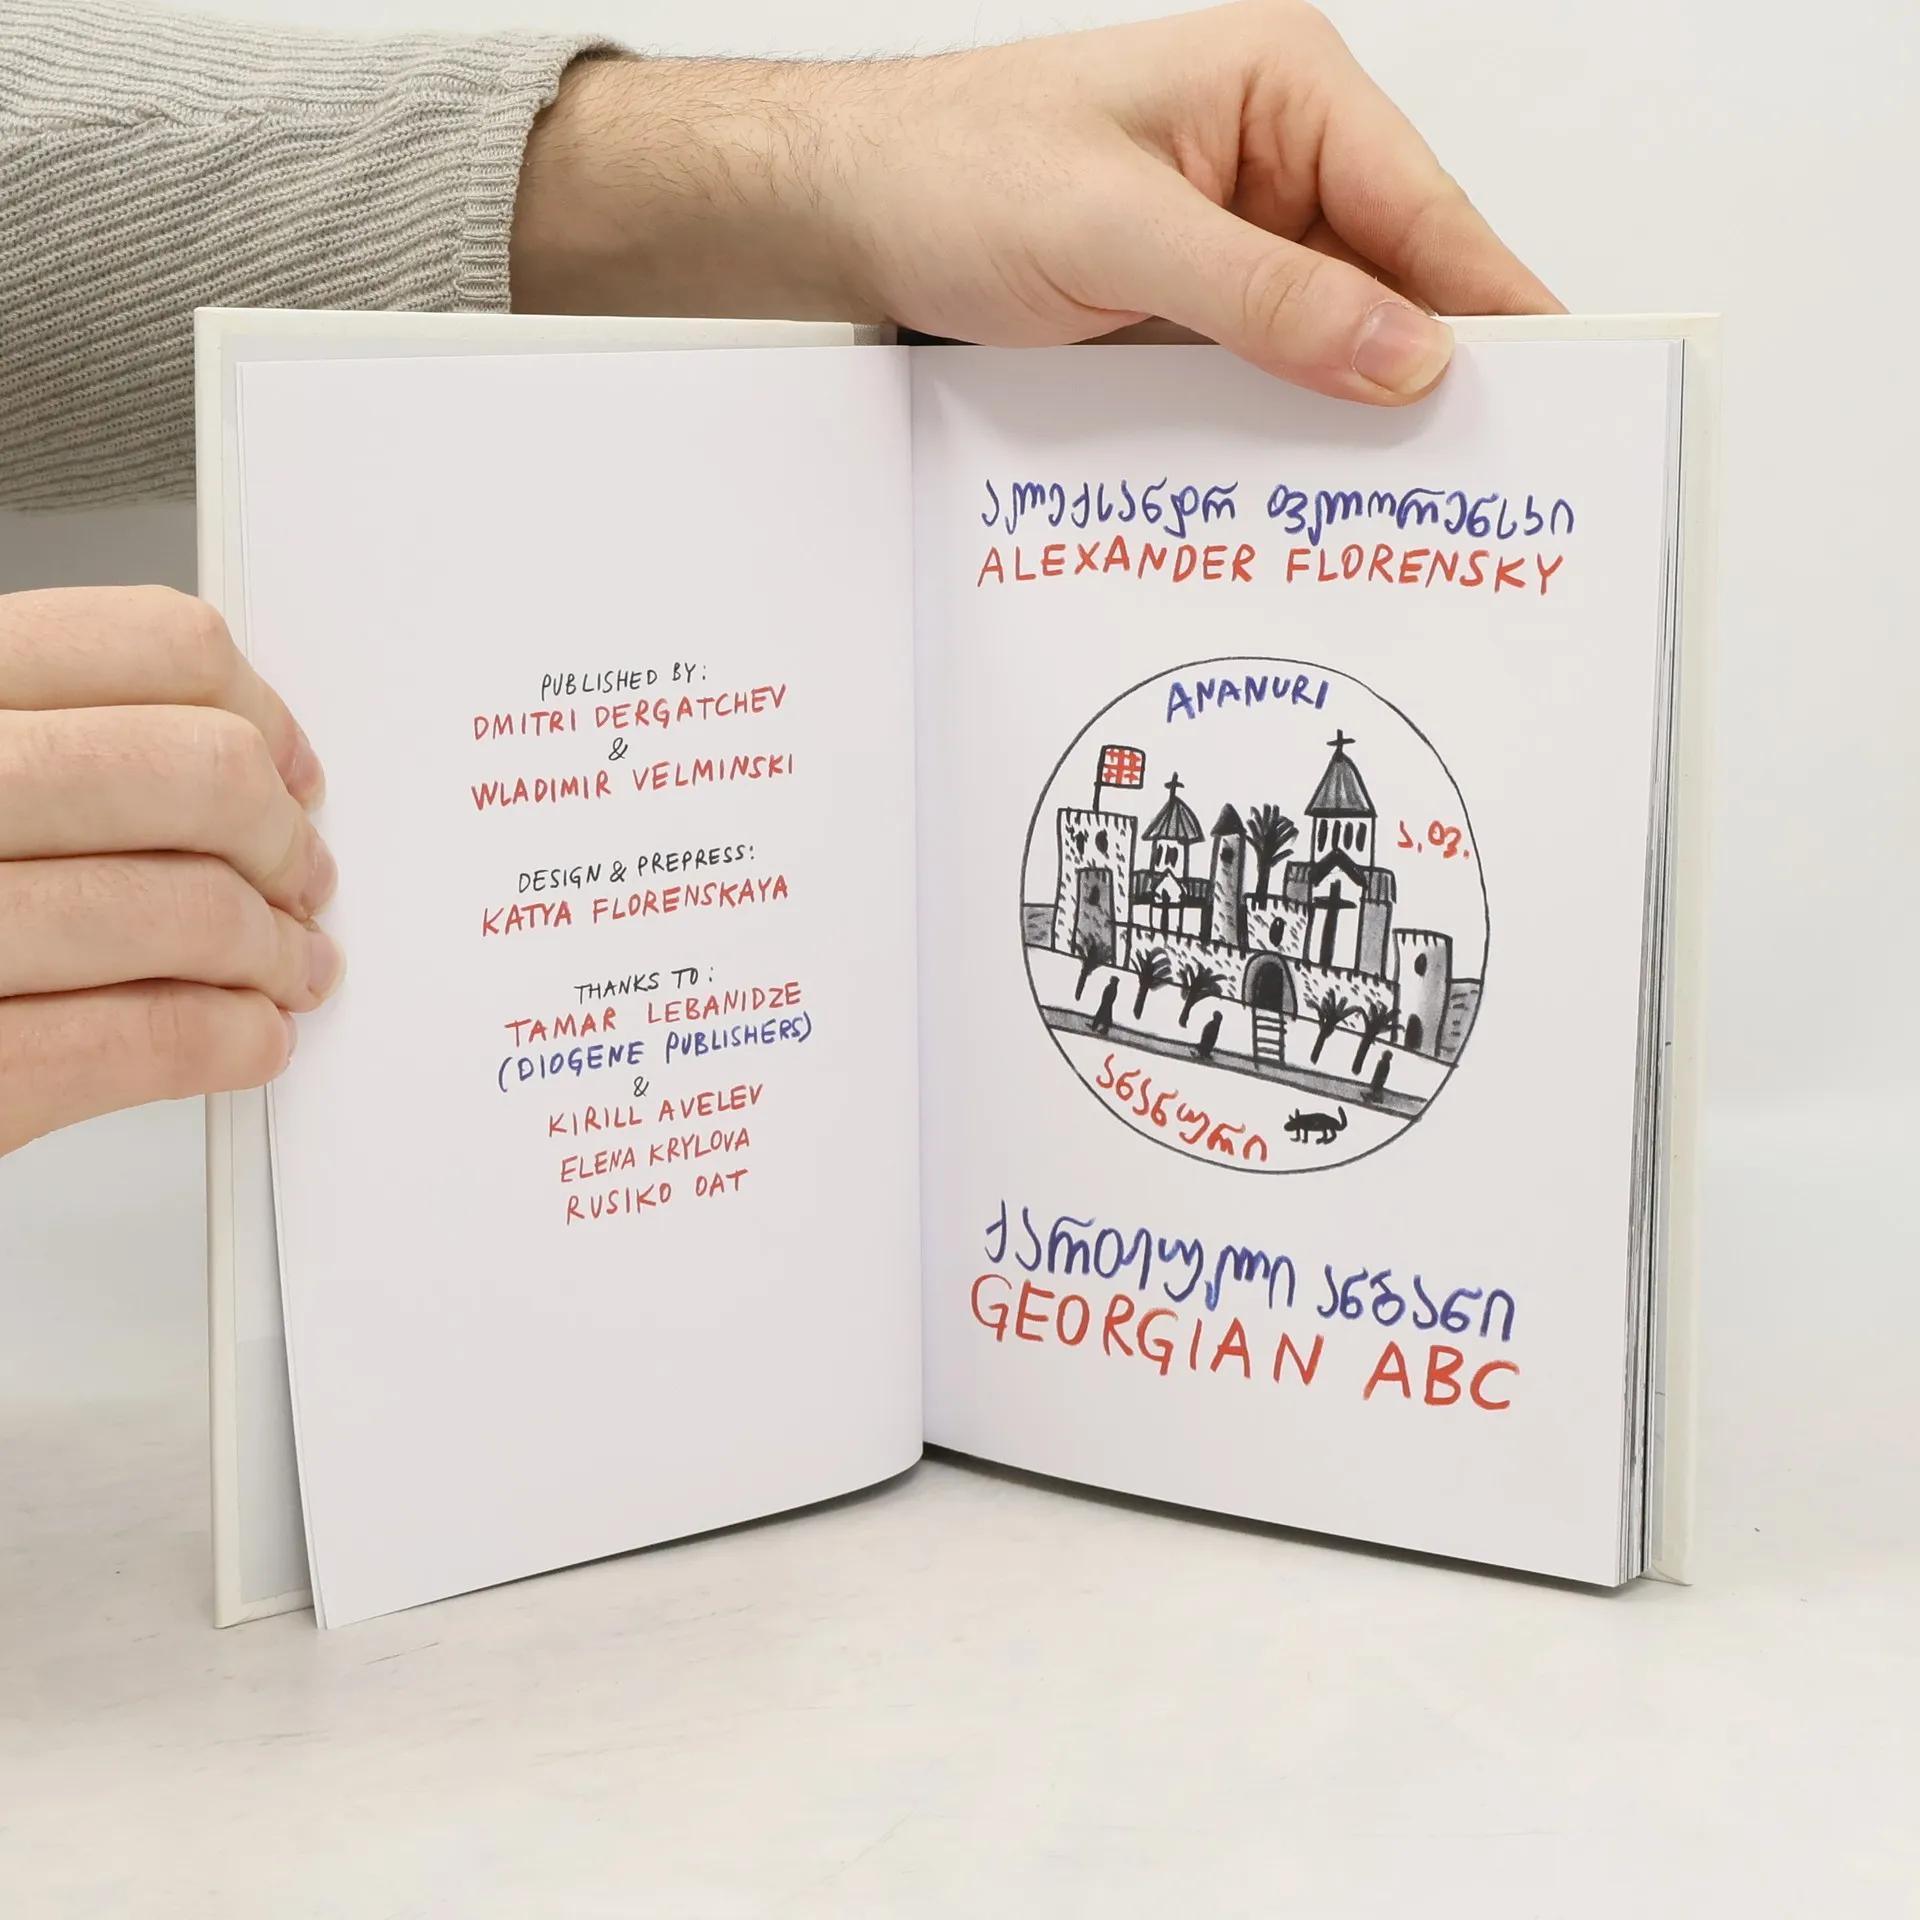 PUBLISHED BY:
DMITRI DERGATCHEV
&
WLADIMIR VELMINSKI
DESIGN & PREPRESS:
KATYA FLORENSKAYA
THANKS TO:
TAMAR LEBANIDZE
(DIOGENE PUBLISHERS)
&
KIRILL AVELEV
ELENA KRYLOVA
RUSIKO OAT
ალექსანდრ ფლორენსკი
ALEXANDER FLORENSKY
ANANURI
ა.ფ.
ანანური
ქართული ანბანი
GEORGIAN ABC